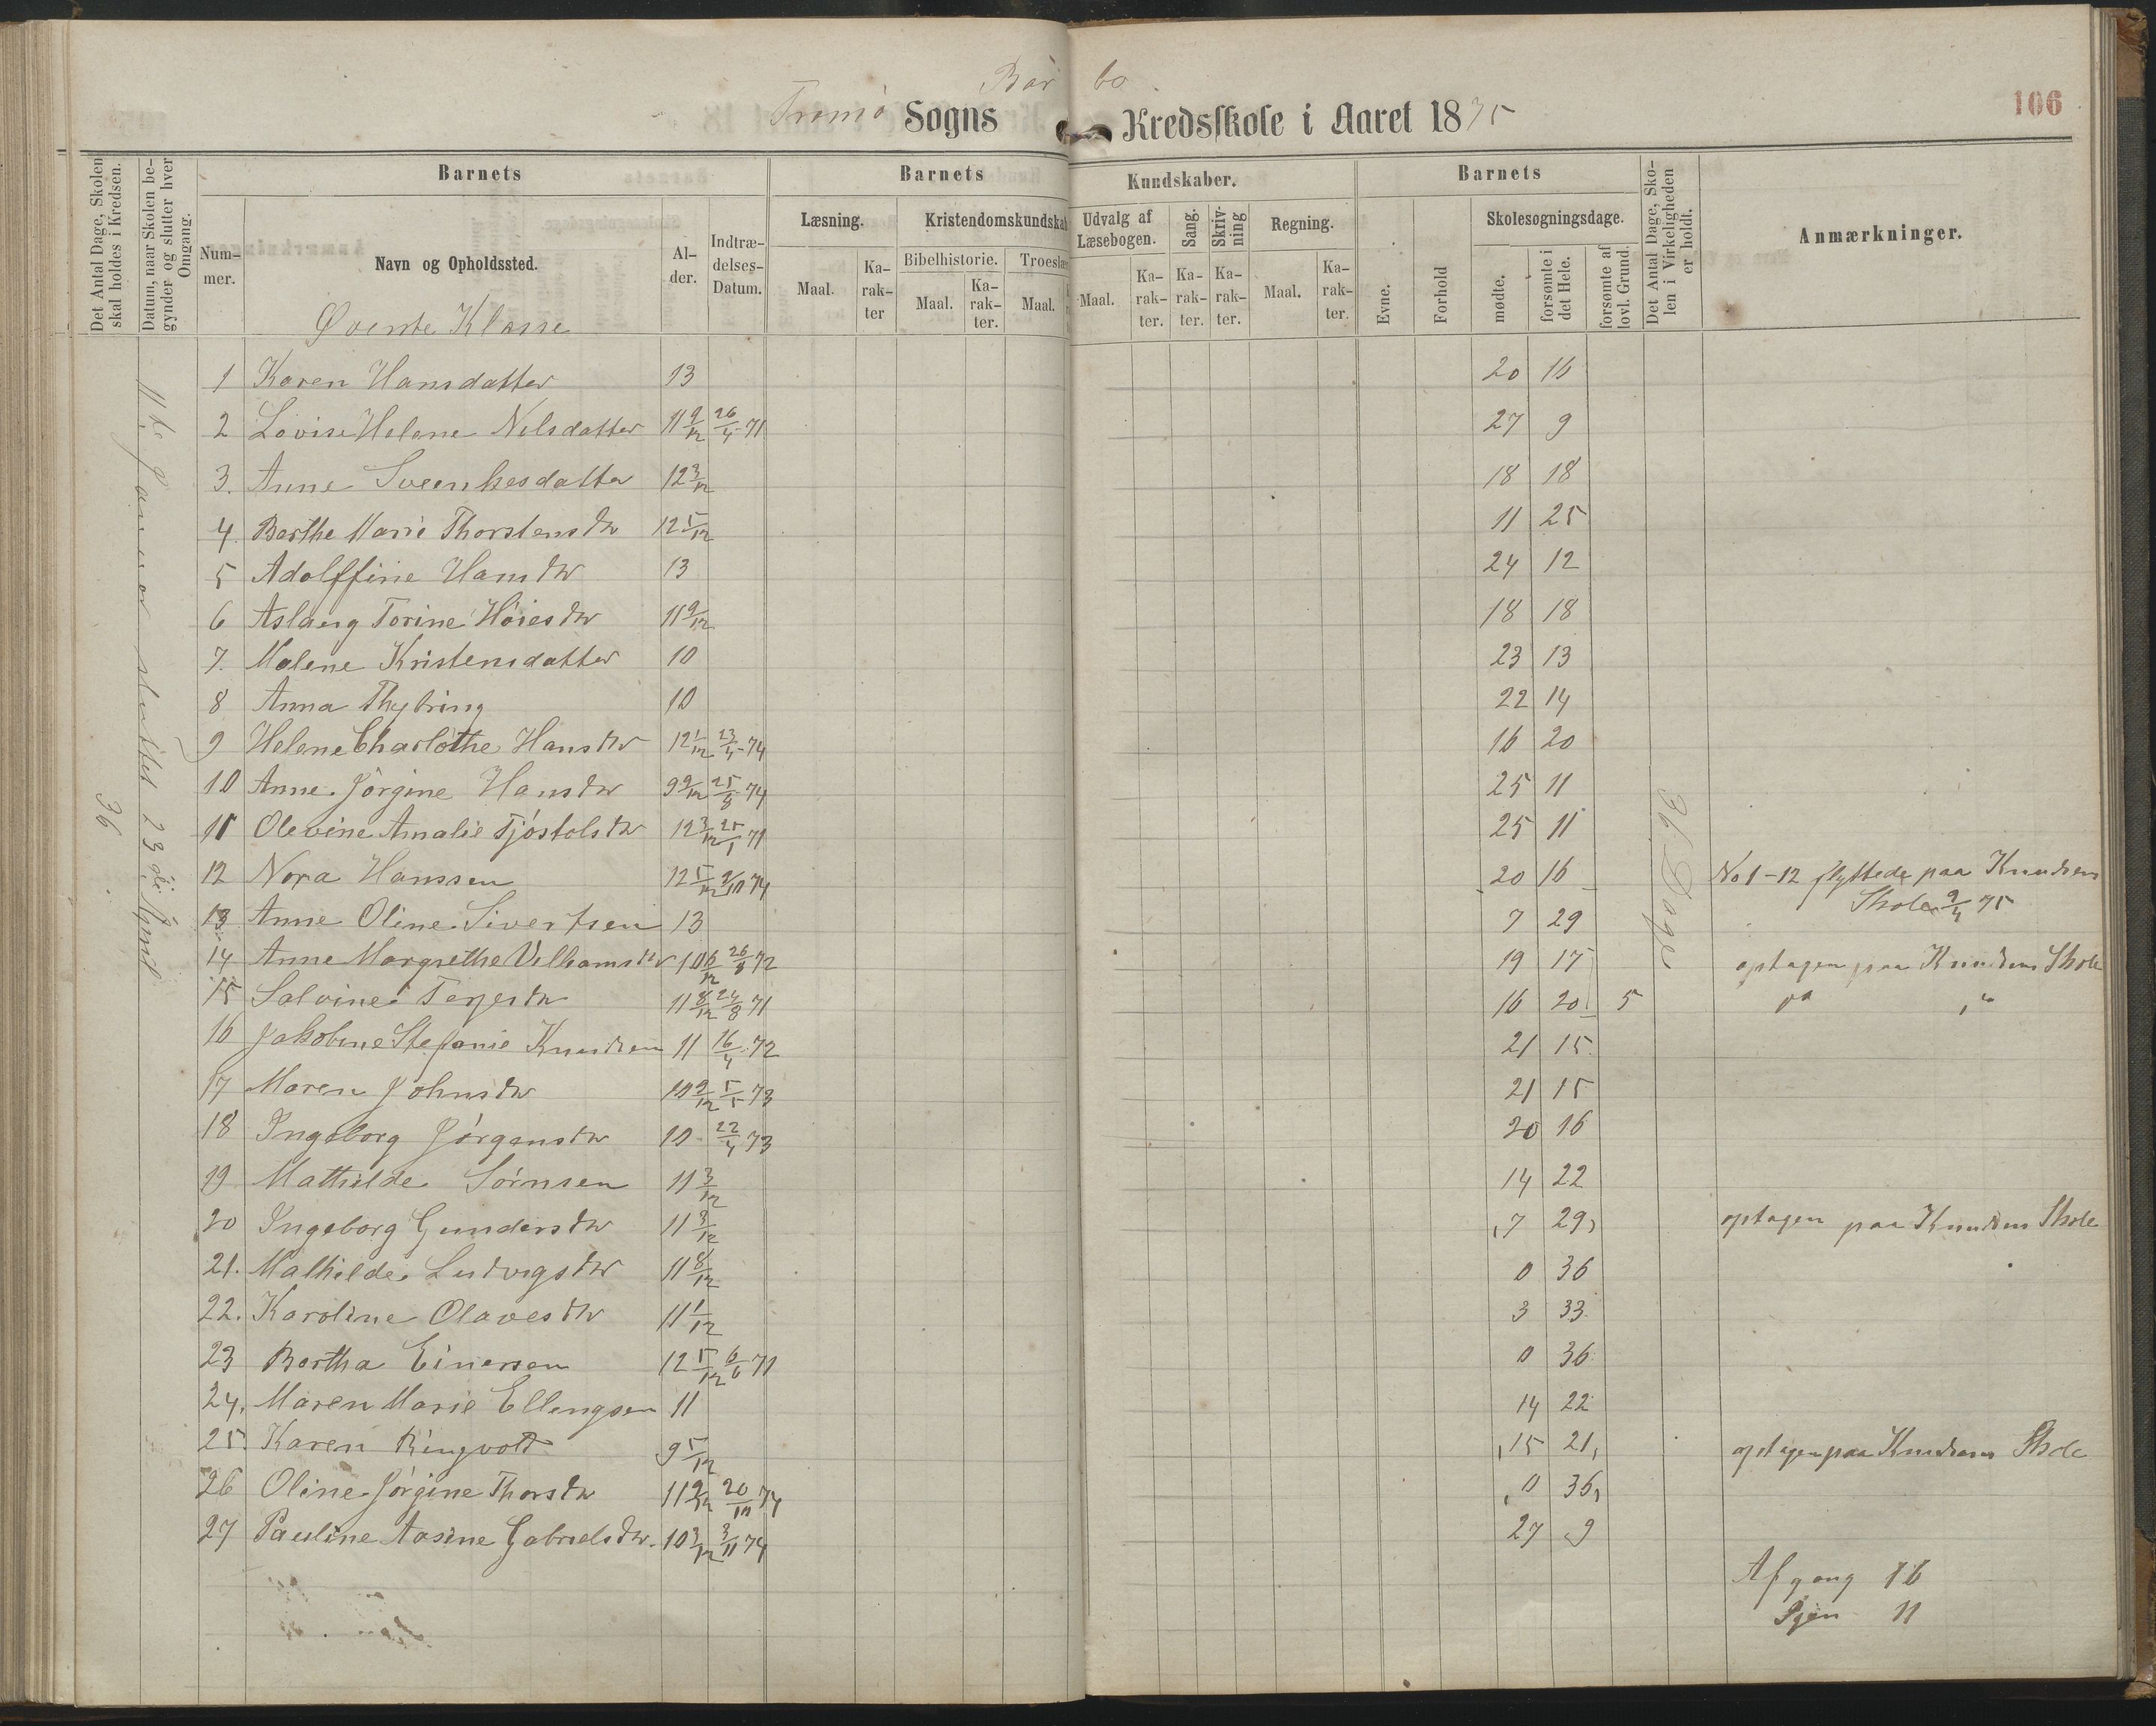 Bar bo
Tromø Sogns Kredsskole i Aaret 1875
106
Det Antal Dage, Skolen skal holdes i Kredsen.
Datum, naar Skolen begynder og slutter hver Omgang.
Barnets
Barnets
Kundskaber.
Barnets
Det Antal Dage, Skolen i Virkeligheden er holdt.
Anmærkninger.
Nummer.
Navn og Opholdssted.
Alder.
Indtrædelses-Datum.
Læsning.
Kristendomskundskab
Udvalg af Læsebogen.
Sang.
Skrivning
Regning.
Evne.
Forhold
Skolesøgningsdage.
Maal.
Karakter
Bibelhistorie.
Troeslæ
Maal.
Karakter.
Maal.
Maal.
Karakter.
Karakter.
Karakter.
Maal.
Karakter.
mødte.
forsømte i det Hele.
forsømte af lovl. Grund.
Øverste Klasse
11te Januar sluttet 23de April
36
36 Dage
1 Karen Hansdatter 13 20 16
2 Lovise Helene Nilsdatter 11 9/12 26/4-71 27 9
3. Anne Sveenkesdatter 12 3/12 18 18
4 Berthe Marie Thorstensdtr 12 5/12 11 25
5 Adolffine Hansdtr 13 24 12
6 Aslaug Torine Høiesdtr 11 9/12 18 18
7. Malene Kristensdatter 10 23 13
8 Anna Thybring 10 22 14
9 Helene Charlothe Hansdtr 12 1/12 23/4-74 16 20
10 Anne Jørgine Hansdtr 9 9/12 25/8 74 25 11
11 Olevine Amalie Tjøstolsdtr 12 3/12 25/1 71 25 11
12 Nora Hanssen 12 5/12 2/10 74 20 16 No 1-12 flyttede paa Knudsens
Skole 9/4 75
13 Anne Oline Sivertsen 13 7 29
14 Anne Margrethe Velhamsdtr 10 6/12 26/8 72 19 17 optagen paa Knudsens Skole
15 Salvine Terjesdtr 11 8/12 24/8 71 16 20 5
16 Jakobine Stefanie Knudsen 11 16/4 72 21 15
17 Maren Johnsdtr 10 9/12 5/5 73 21 15
18 Ingeborg Jørgensdtr 10 22/4 73 20 16
19 Mathilde Sørnsen 11 3/12 14 22
20 Ingeborg Gundersdtr 11 3/12 7 29 optagen paa Knudsens Skole
21. Mathilde Ludvigsdtr 11 8/12 0 36
22. Karoline Olavesdtr 11 1/12 3 33
23 Bertha Einersen 12 5/12 6/6 71 0 36
24. Maren Marie Ellengsen 11 14 22
25. Karen Ringvold 9 5/12 15 21 optagen paa Knudsens Skole
26 Oline Jørgine Thorsdtr 11 9/12 20/10 74 0 36
27 Pauline Aasine Gabrielsdtr. 10 3/12 3/11 74 27 9
Afgang 16
Igjen 11